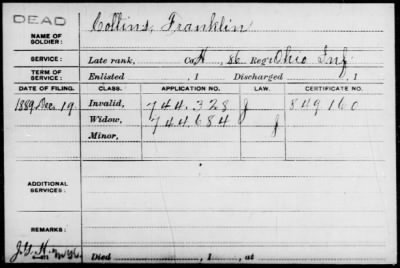 DEAD
NAME OF SOLDIER: Collins, Franklin
SERVICE: Late rank, Co. H, 86 Reg't Ohio Inf
TERM OF SERVICE: Enlisted , 1 Discharged , 1
DATE OF FILING. CLASS. APPLICATION NO. LAW. CERTIFICATE NO.
1889, Dec. 19. Invalid, 744.328 J 849160
Widow, 744.684 J
Minor,
ADDITIONAL SERVICES:
REMARKS:
Died , 1 , at